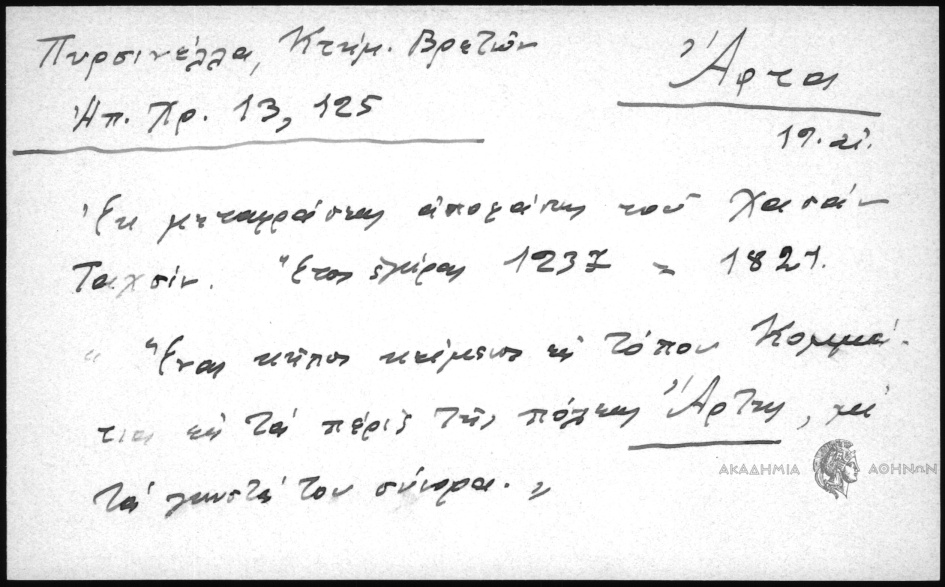 Πυρσινέλλα, Κτημ. Βρετῶν
Ἠπ. Χρ. 13, 125
Ἄρτα
19. αἰ.
Ἐκ μεταφράσεως ἀποφάσεως τοῦ Χασάν
Ταχσίν. Ἔτος ἐγίρας 1237 = 1821.
" Ἕνας κῆπος κείμενος εἰς τόπον Κομμά-
τια εἰς τά πέριξ τῆς πόλεως Ἄρτης, μέ
τά γνωστά του σύνορα. "
ΑΚΑΔΗΜΙΑ ΑΘΗΝΩΝ